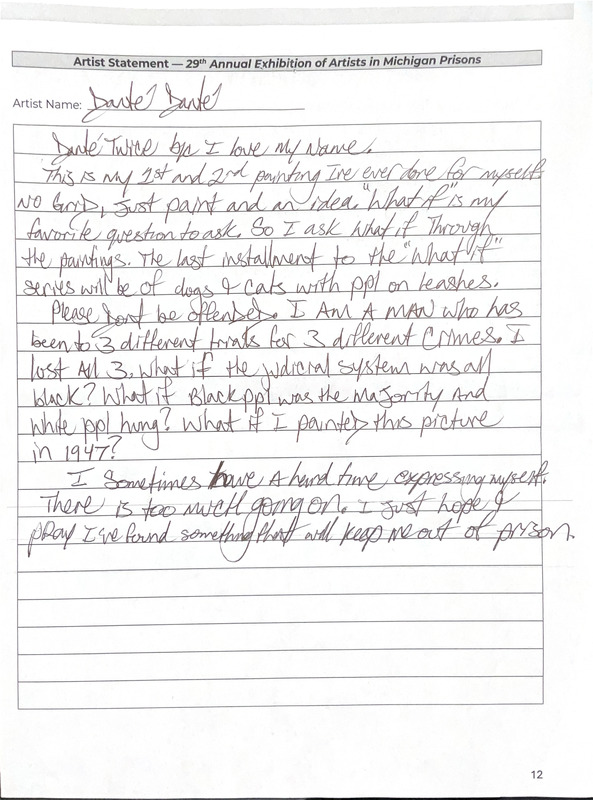 Artist Statement — 29th Annual Exhibition of Artists in Michigan Prisons
Artist Name: Danté Danté
Danté Twice bp I love my Name.
This is my 1st and 2nd painting I've ever done for myself.
NO Grid, just paint and an idea. "What if" is my
favorite question to ask. So I ask what if Through
the paintings. The last installment to the "What if"
series will be of dogs & cats with ppl on leashes.
Please Dont be offended. I AM A MAN who has
been to 3 different trials for 3 different Crimes. I
lost All 3. What if the judicial system was all
black? What if Black ppl was the Majority And
white ppl hung? What if I painted this picture
in 1947?
I Sometimes have A hard time expressing myself.
There is too much going on. I just hope &
pray I've found something that will keep me out of prison.
12